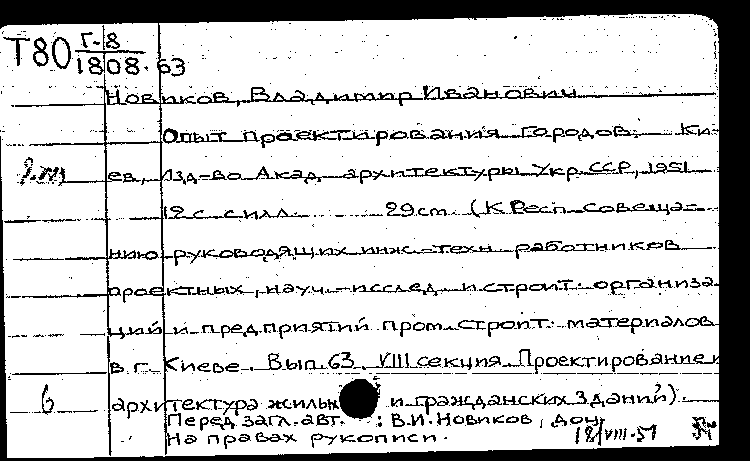 Т80 Г-8
1808.63
Новиков, Владимир Иванович
Опыт проектирования городов. Ки-
ев, Изд-во Акад. архитектуры Укр.ССР, 1951
12 с. с илл. 29 cm. (К Респ. совеща-
нию руководящих инж.-техн. работников
проектных, науч.-исслед. и строит. организа
ций и предприятий пром. строит. материалов
в г. Киеве. Вып. 63. VIII секция. Проектирование и
6 архитектура жилых и гражданских зданий).
Перед загл. авт.: В.И. Новиков, доц.
На правах рукописи. 18/VIII-51